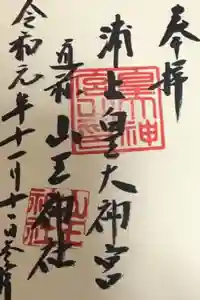 奉拝
浦上皇大神宮
通称 山王神社
令和元年十一月十一日参拝